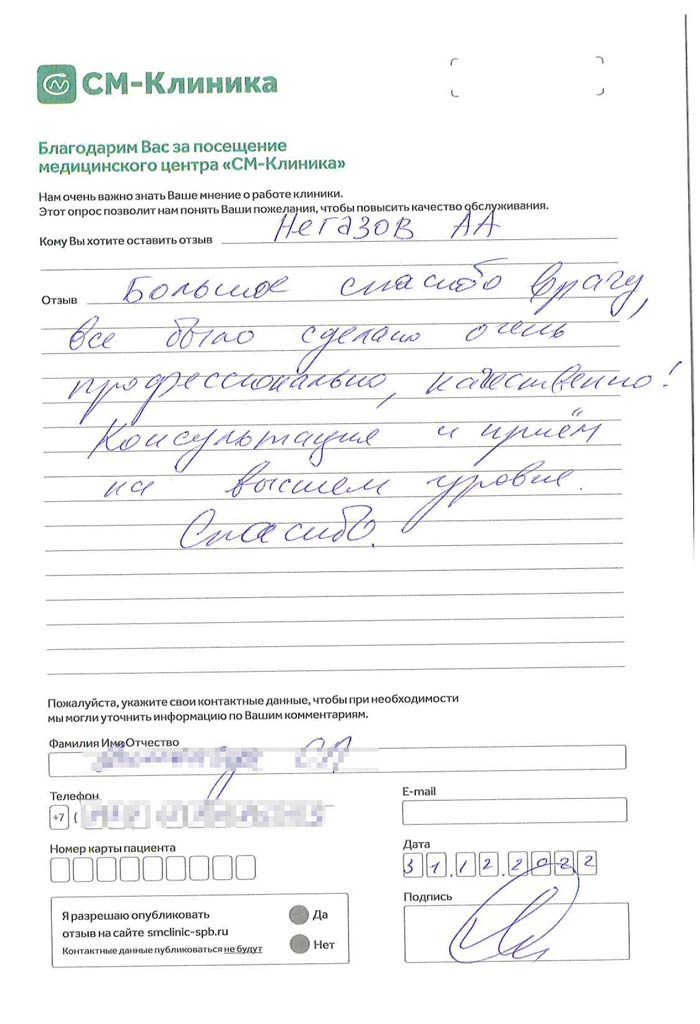 СМ-Клиника
Благодарим Вас за посещение
медицинского центра «СМ-Клиника»
Нам очень важно знать Ваше мнение о работе клиники.
Этот опрос позволит нам понять Ваши пожелания, чтобы повысить качество обслуживания.
Кому Вы хотите оставить отзыв Негазов АА
Отзыв Большое спасибо врачу,
все было сделано очень
профессионально, качественно!
Консультация и приём
на высшем уровне.
Спасибо.
Пожалуйста, укажите свои контактные данные, чтобы при необходимости
мы могли уточнить информацию по Вашим комментариям.
Фамилия Имя Отчество
Телефон
+7 (
E-mail
Номер карты пациента
Дата
31.12.2022
Подпись
Я разрешаю опубликовать
отзыв на сайте smclinic-spb.ru
Контактные данные публиковаться не будут
Да
Нет